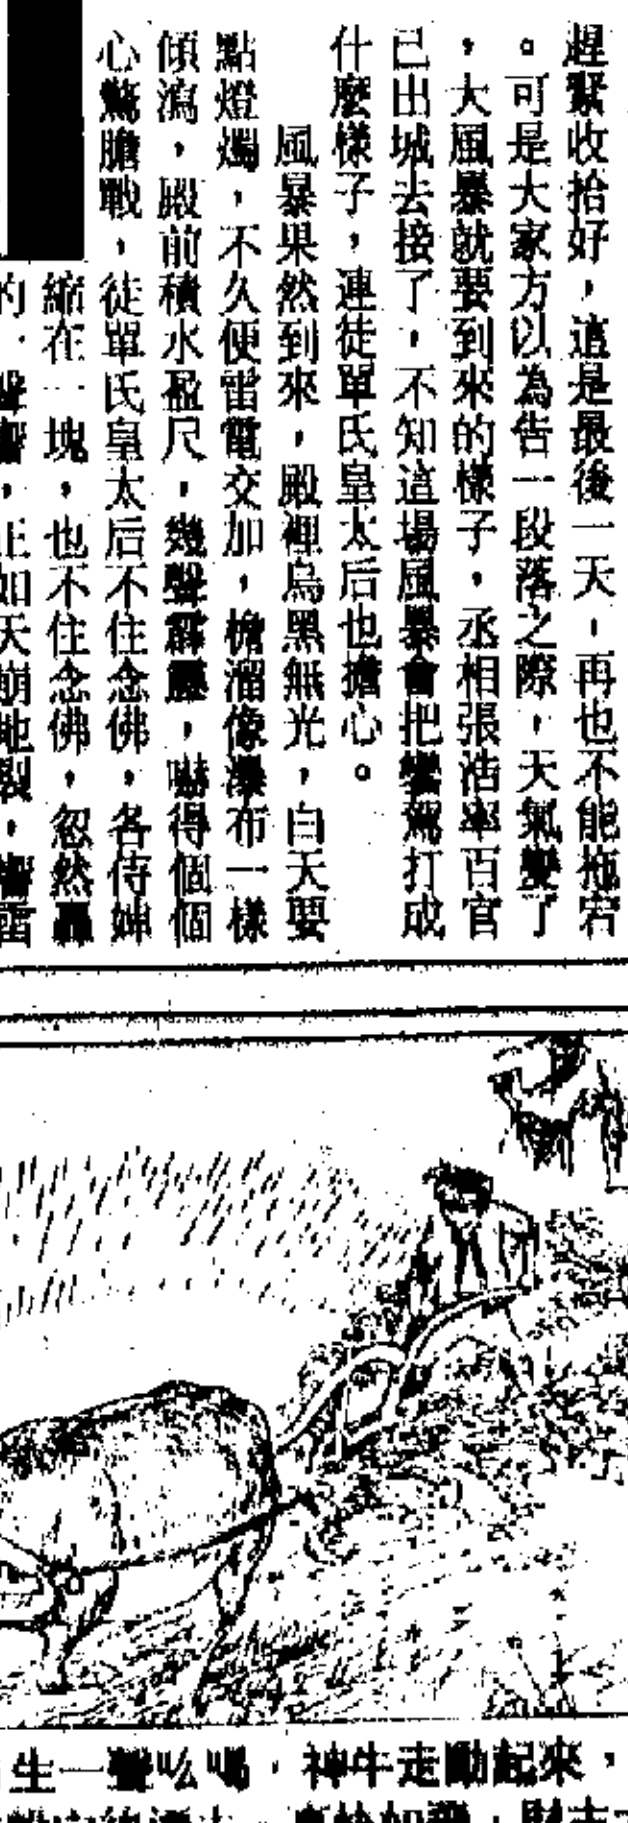 趕緊收拾好，這是最後一天，再也不能拖宕
。可是大家方以為告一段落之際，天氣變了
，大風暴就要到來的樣子，丞相張浩率百官
已出城去接了，不知這場風暴會把鑾駕打成
什麼樣子，連徒單氏皇太后也擔心。
風暴果然到來，殿裡烏黑無光，白天要
點燈燭，不久便雷電交加，檐溜像瀑布一樣
傾瀉，殿前積水盈尺，幾聲霹靂，嚇得個個
心驚膽戰，徒單氏皇太后不住念佛，各侍婢
縮在一塊，也不住念佛，忽然轟
的一聲響，正如天崩地裂，響雷
生一聲吆喝，神牛走動起來，